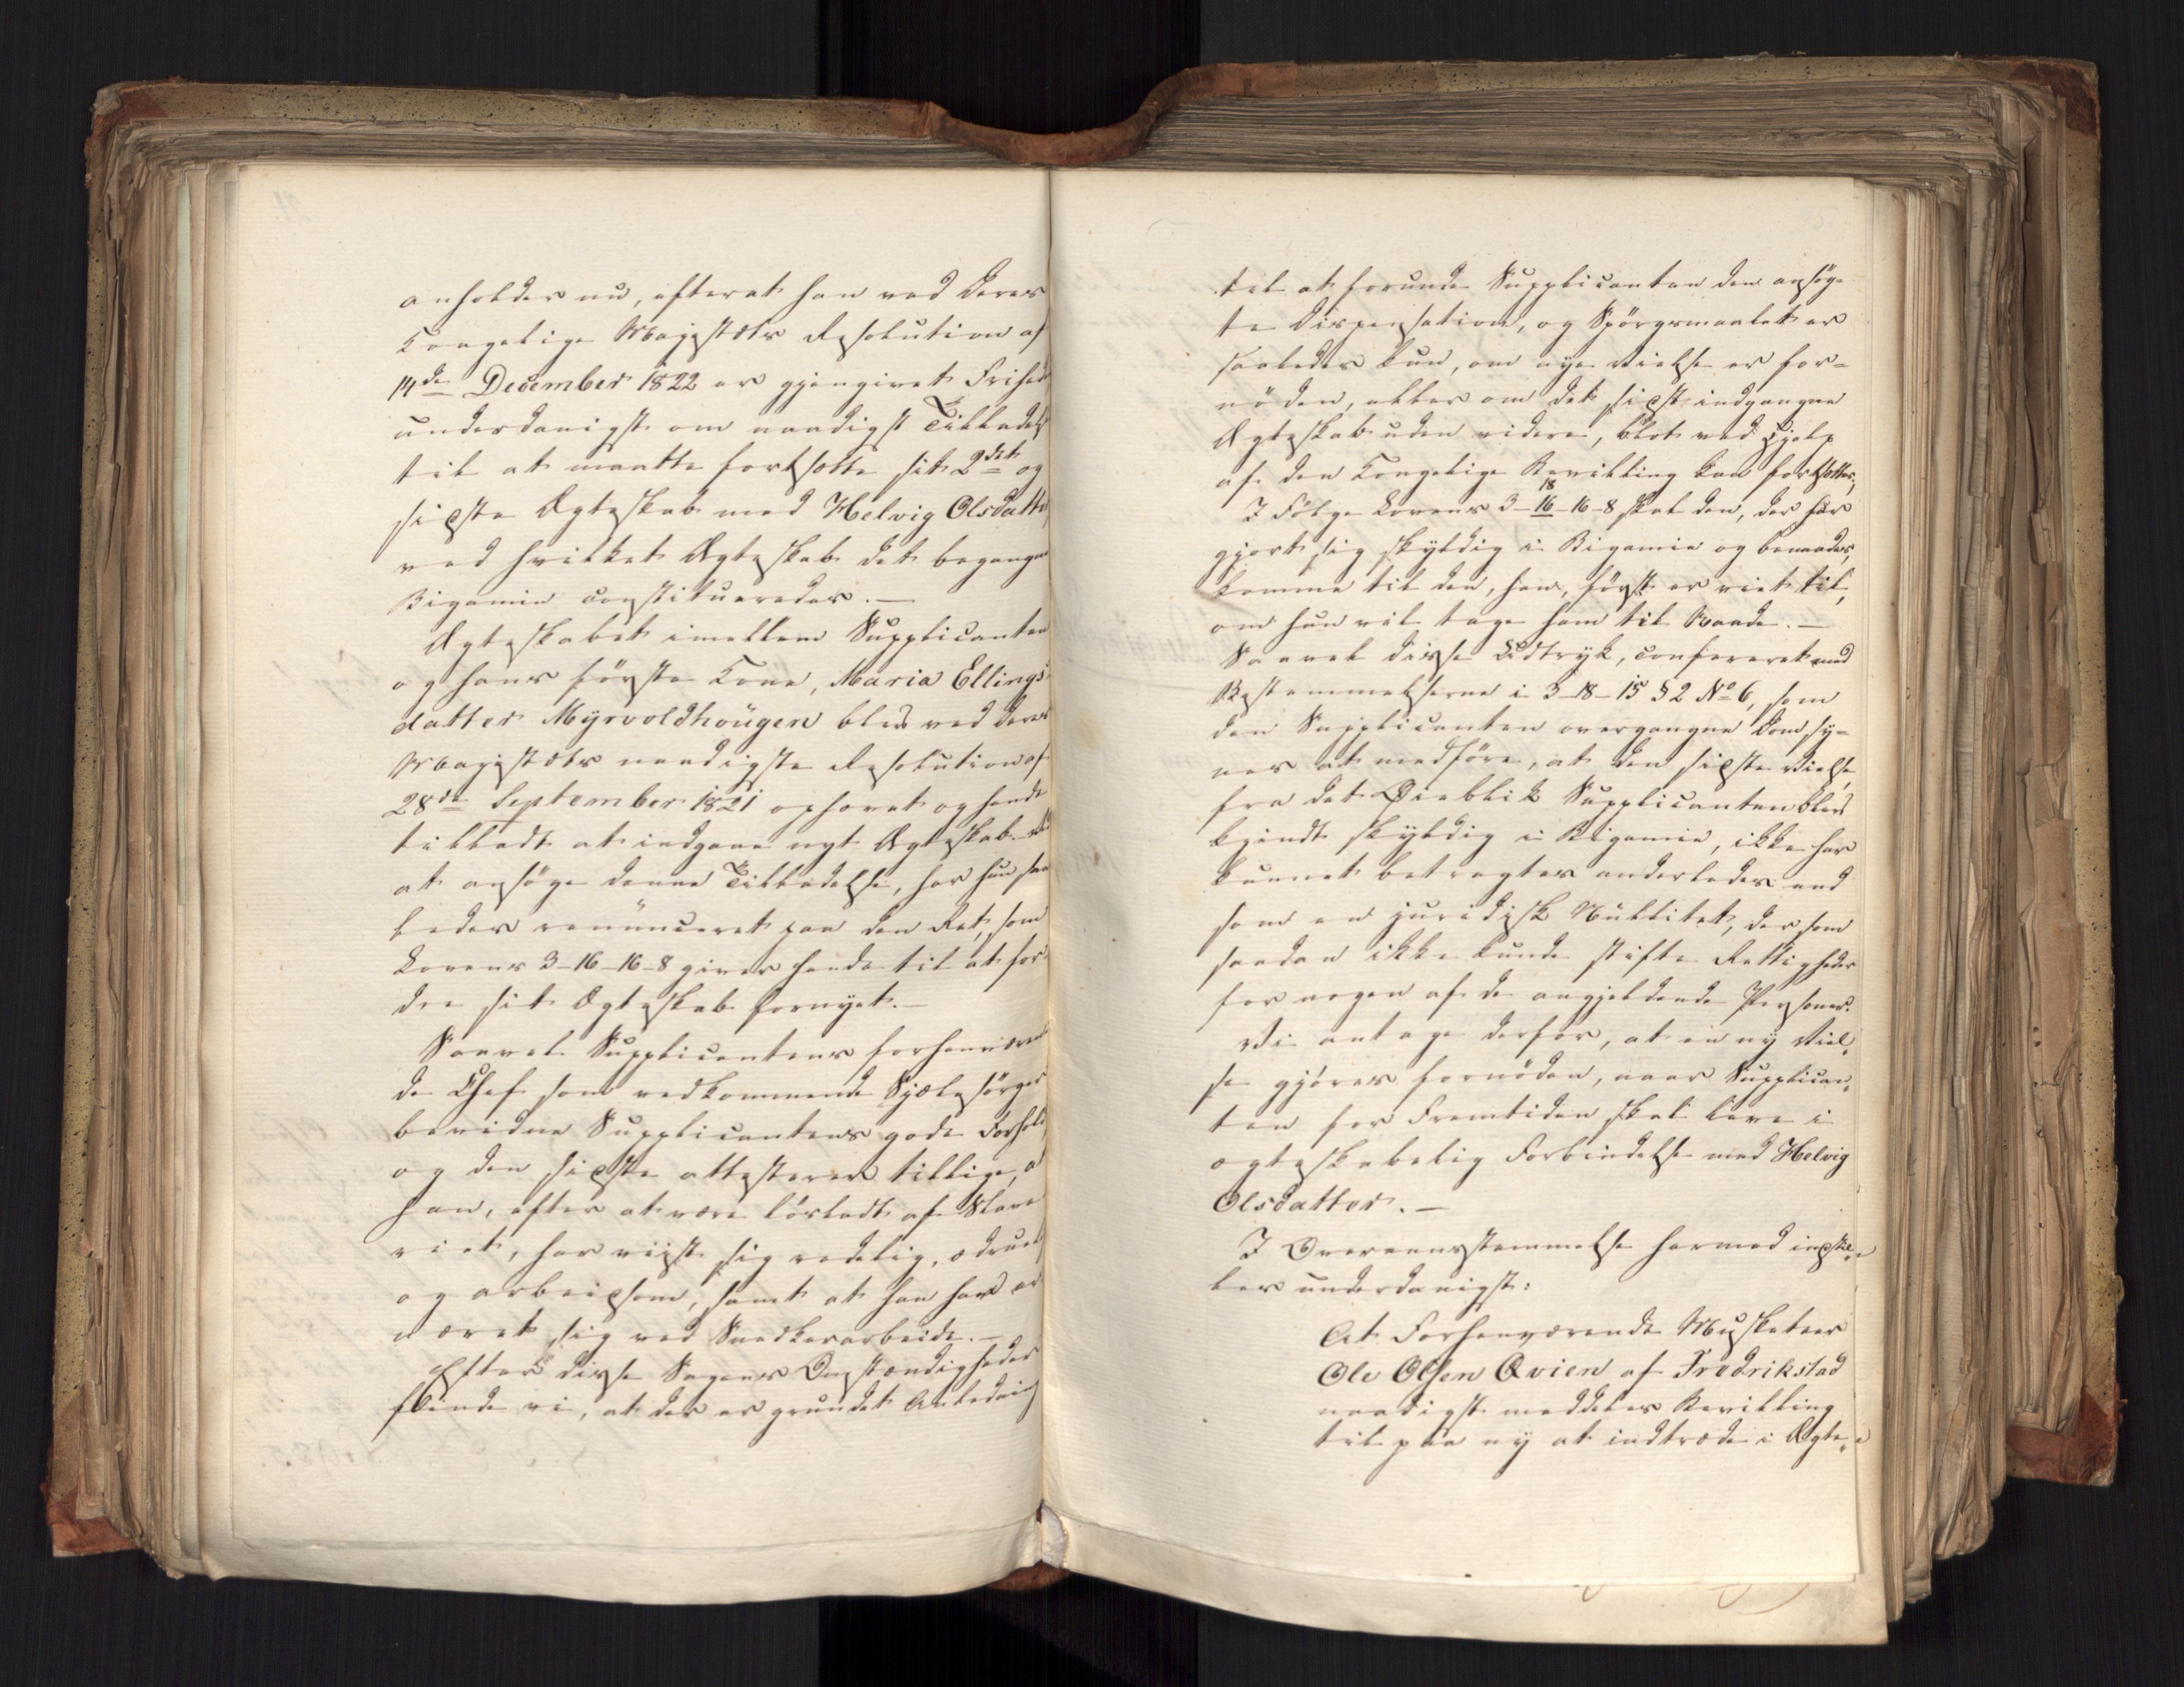 anholder nu, efterat han ved Deres
Kongelige Majestæts Resolution af
14de December 1822 er gjengivet Frihed
underdanigst om naadigst Tilladelse
til at maatte fortsætte sit 2det og
sidste Ægteskab med Helvig Olsdatter
ved hvilket Ægteskab det begangne
Bigamie constitueredes.—
Ægteskabet imellem Supplicanten
og hans første Kone, Maria Ellings-
datter Myrvoldhougen blev ved Deres
Majestæts naadigste Resolution af
28de September 1821 ophævet og hende
tilladt at indgaae nyt Ægteskab. Ved
at ansøge denne Tilladelse, har hun saa
ledes renunceret paa den Ret, som
Lovens 3-16-16-8 giver hende til at for-
dre sit Ægteskab fornyet.—
Saavel Supplicantens forhenværen
de Chef som vedkommende Sjælesørger
bevidne Supplicantens gode Forhold,
og den sidste attesterer tillige, at
han, efter at være løsladt af Slave
riet, har viist sig redelig, ædruelig
og arbeidsom, samt at han har er
næret sig ved Snedkerarbeide.—
Efter disse Sagens Omstændigheder
finde vi, at der er grundet Anledning
til at forunde Supplicanten den ansøg-
te Dispensation, og Spørgsmaalet er
saaledes kun, om nye Vielse er for-
nöden, eller om det sidst indgangne
Ægteskab uden videre, blot ved Hjelp
af den Kongelige Bevilling kan fortsættes;
I Følge Lovens 3-16-16-8 skal den, der har
18
gjort sig skyldig i Bigamie og benaades,
komme til den, han, først er viet til,
om hun vil tage ham til Naade.—
Saavel disse Udtryk, confereret med
Bestemmelserne i 3-18-15 § 2 No 6, som
den Supplicanten overgangne Dom, sy-
nes at medføre, at den sidste Vielse,
fra det Øieblik Supplicanten blev
kjendt skyldig i Bigamie, ikke har
kunnet betragtes anderledes end
som en juridisk Nullitet, der som
saadan ikke kunde stifte Rettigheder
for nogen af de angjeldende Personer.
Vi antage derfor, at en ny Viel-
se gjøres fornöden, naar Supplican-
ten for Fremtiden skal leve i
ægteskabelig Forbindelse med Helvig
Olsdatter.—
I Overeensstemmelse hermed indstil-
les underdanigst:
At Forhenværende Musketeer
Ole Olsen Qvien af Fredrikstad
naadigst meddeles Bevilling
til paa ny at indtræde i Ægte-